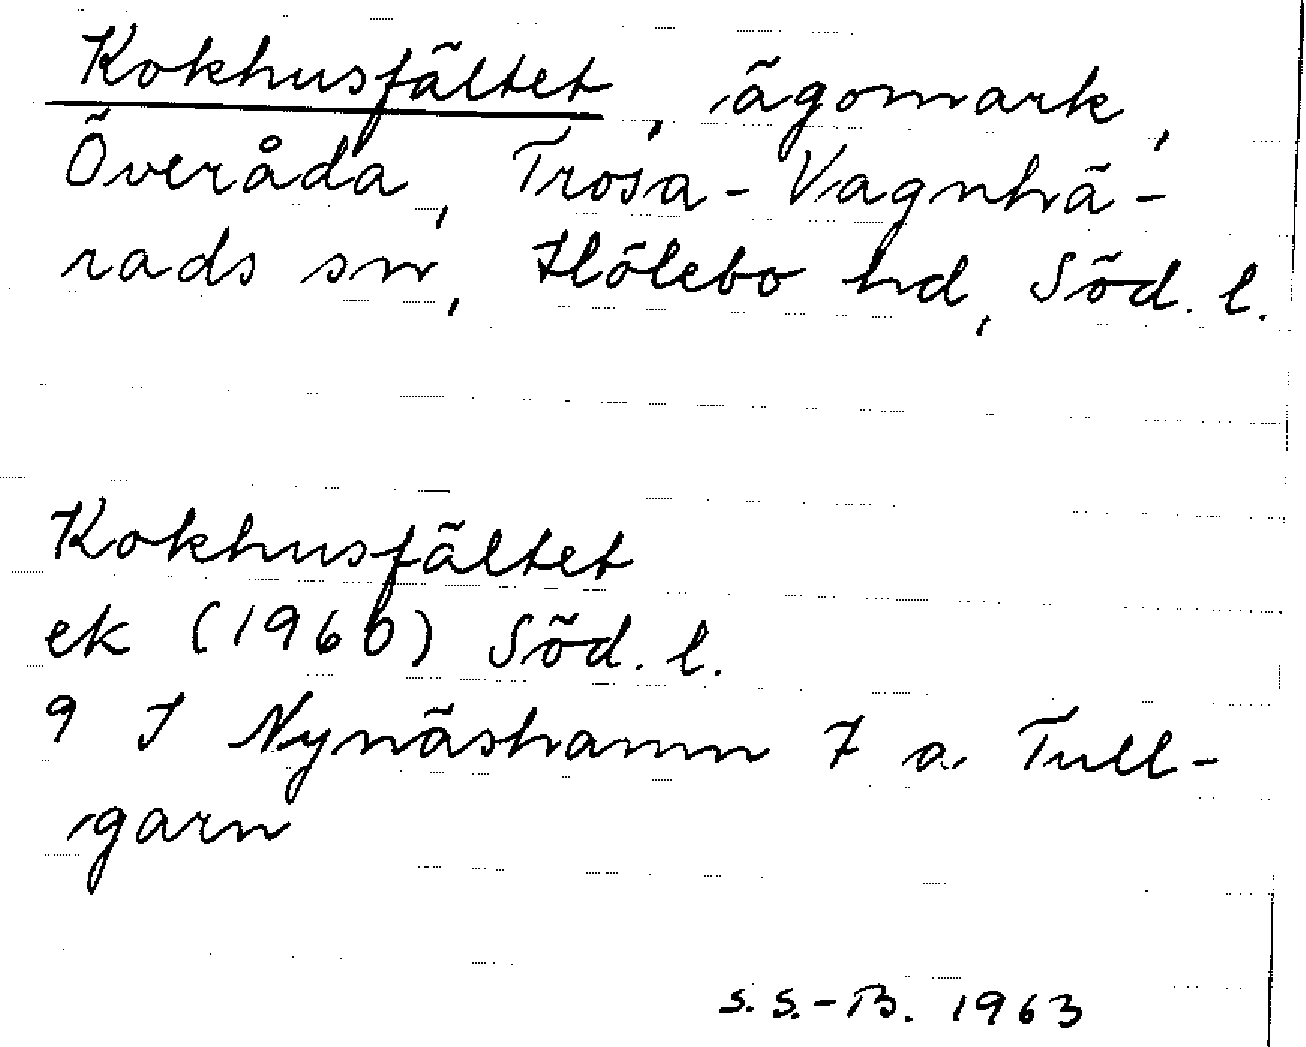 Kokhusfältet, ägomark,
Överåda, Trosa-Vagnhä-
rads sn, Hölebo hd, Söd. l.
Kokhusfältet
ek (1960) Söd. l.
9 I Nynäshamn 7 a Tull-
garn
S. S.-B. 1963